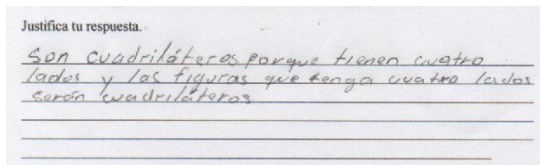 Justifica tu respuesta.
Son cuadriláteros porque tienen cuatro
lados y las figuras que tenga cuatro lados
serán cuadriláteros